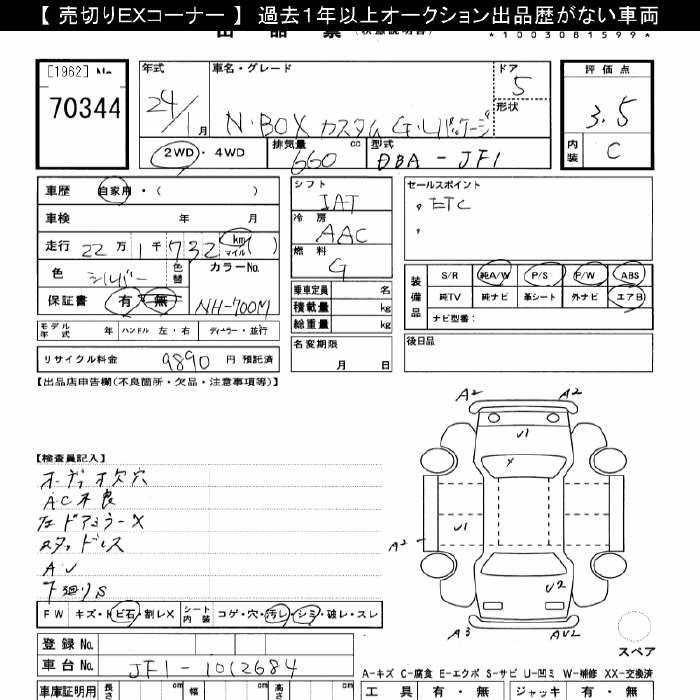 【 売切りEXコーナー 】 過去1年以上オークション出品歴がない車両
*1003081599*
[1962] No.
70344
年式 車名・グレード ドア 5
24/1 月 N・BOX カスタム G・Lパッケージ 形状
2WD ・ 4WD 排気量 660 cc 型式 DBA - JF1
評価点
3.5
内装 C
車歴 自家用・( )
車検 年 月
走行 22 万 1 千 732 km マイル ( )
色 シルバー 色替 カラーNo.
保証書 有・無 NH-700M
モデル年式 年 ハンドル 左・右 ディーラー・並行
リサイクル料金 9890 円 預託済
シフト IAT
冷房 AAC
燃料 G
乗車定員 名
積載量 kg
総重量 kg
名変期限 月 日
セールスポイント
ETC
装備品 S/R 純A/W P/S P/W ABS
純TV 純ナビ 革シート 外ナビ エアB
ナビ型番:
後日品
【出品店申告欄(不良箇所・欠品・注意事項等)】
【検査員記入】
オーディオ欠穴
AC不良
左ドアミラーX
スタッドレス
AU
下廻りS
FW キズ・トビ石・割レX シート内装 コゲ・穴・汚レ・シミ・破レ・スレ
登録No.
車台No. JF1-1012684
車庫証明用 長さ cm 幅 cm 高さ cm
A2 A2
U1
X
A2 U1
U2
A3 AU2
スペア
A-キズ C-腐食 E-エクボ S-サビ U-凹ミ W-補修 XX-交換済
工具 有・無 ジャッキ 有・無